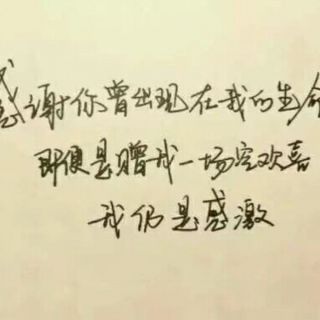 感谢你曾出现在我的生命
即便是赠我一场空欢喜
我仍是感激